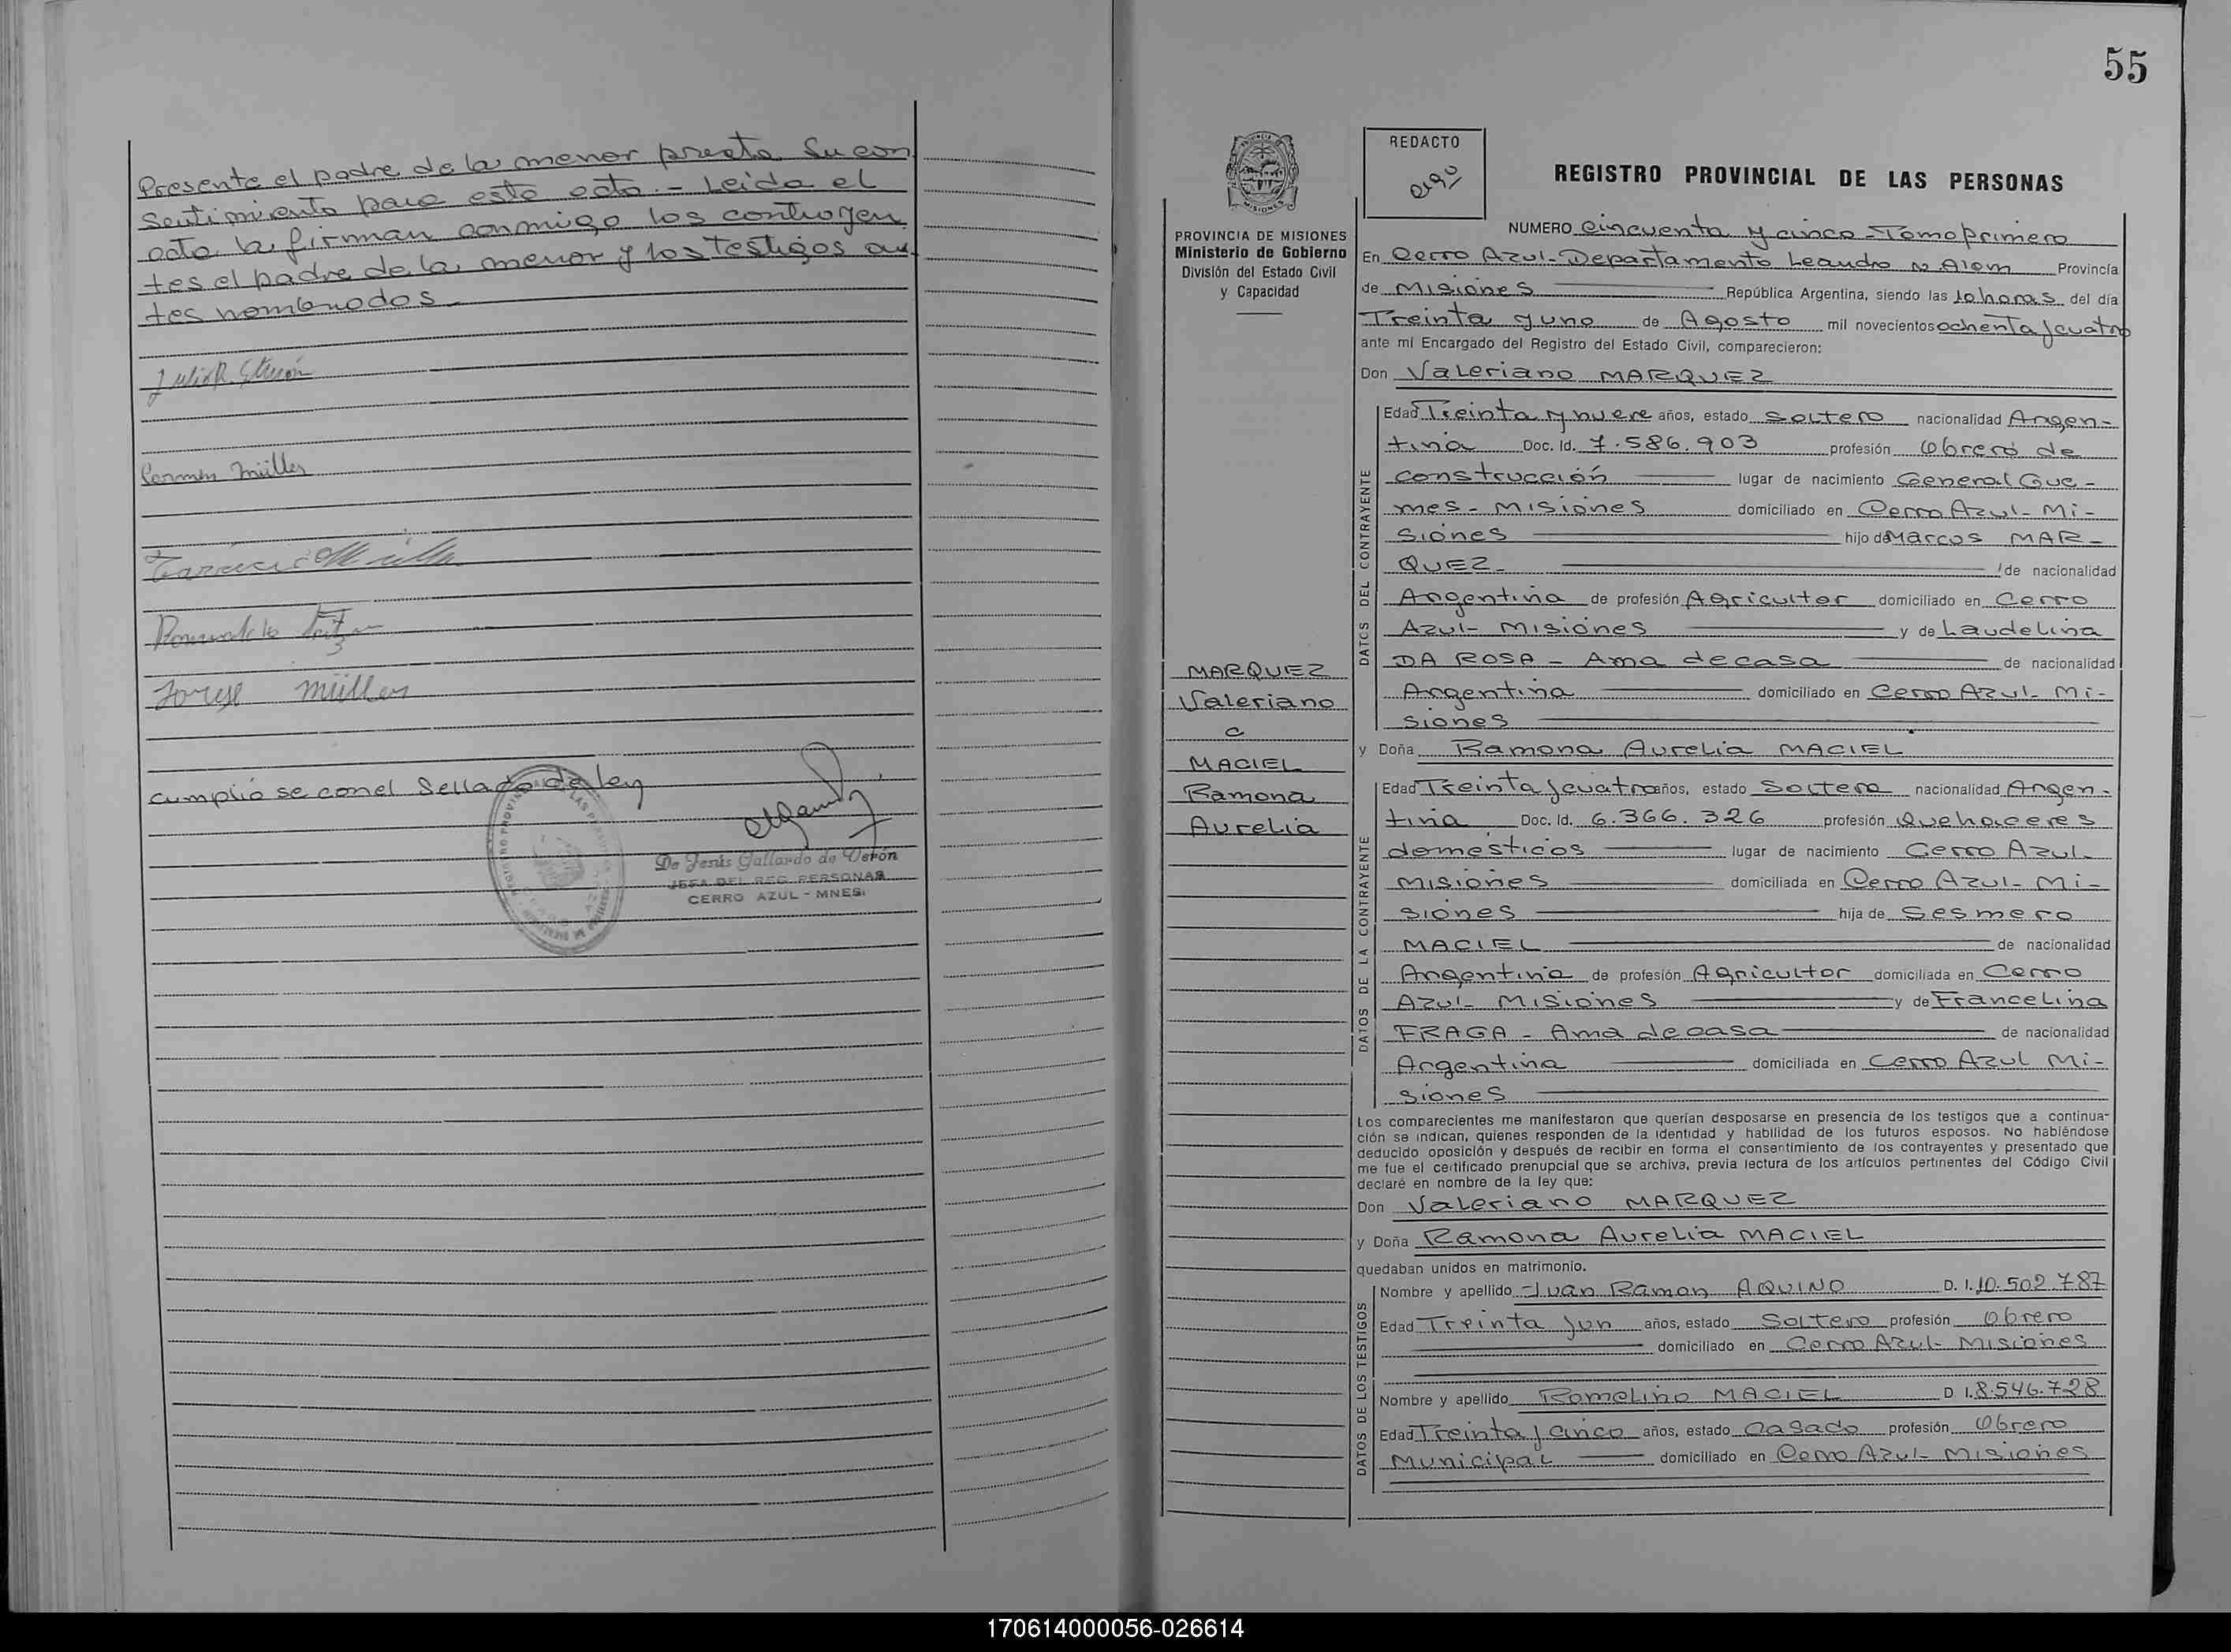 Presente el padre de la menor presta su con
sentimiento para este acto.- Leida el
acta la firman conmigo los contrayen
tes el padre de la menor y los testigos an
tes nombrados
Carmen Müller
Jorge Müller
cumplió se con el Sellado de ley
De Jesús Gallardo de Verón
JEFA DEL REG PERSONAS
CERRO AZUL - MNES.
55
PROVINCIA DE MISIONES
Ministerio de Gobierno
División del Estado Civil
y Capacidad
MARQUEZ
Valeriano
c
MACIEL
Ramona
Aurelia
REDACTO
REGISTRO PROVINCIAL DE LAS PERSONAS
NUMERO Cincuenta y cinco - Tomo primero
En Cerro Azul - Departamento Leandro N Alem Provincia
de Misiones República Argentina, siendo las 10 horas del día
Treinta y uno de Agosto mil novecientos ochenta y cuatro
ante mi Encargado del Registro del Estado Civil, comparecieron:
Don Valeriano MARQUEZ
DATOS DEL CONTRAYENTE
Edad Treinta y nueve años, estado Soltero nacionalidad Argen-
tina Doc. Id. 7.586.903 profesión Obrero de
construcción lugar de nacimiento General Güe-
mes - Misiones domiciliado en Cerro Azul - Mi-
siones hijo de Marcos MAR-
QUEZ - de nacionalidad
Argentina de profesión Agricultor domiciliado en Cerro
Azul - Misiones y de Laudelina
DA ROSA - Ama de casa de nacionalidad
Argentina domiciliado en Cerro Azul - Mi-
siones
y Doña Ramona Aurelia MACIEL
DATOS DE LA CONTRAYENTE
Edad Treinta y cuatro años, estado Soltera nacionalidad Argen-
tina Doc. Id. 6.366.326 profesión Quehaceres
domesticos lugar de nacimiento Cerro Azul -
Misiones domiciliada en Cerro Azul - Mi-
siones hija de Sesmero
MACIEL de nacionalidad
Argentina de profesión Agricultor domiciliada en Cerro
Azul - Misiones y de Francelina
FRAGA - Ama de casa de nacionalidad
Argentina domiciliada en Cerro Azul Mi-
siones
Los comparecientes me manifestaron que querían desposarse en presencia de los testigos que a continua-
ción se indican, quienes responden de la identidad y habilidad de los futuros esposos. No habiéndose
deducido oposición y después de recibir en forma el consentimiento de los contrayentes y presentado que
me fue el certificado prenupcial que se archiva, previa lectura de los artículos pertinentes del Código Civil
declaré en nombre de la ley que:
Don Valeriano MARQUEZ
y Doña Ramona Aurelia MACIEL
quedaban unidos en matrimonio.
DATOS DE LOS TESTIGOS
Nombre y apellido Juan Ramon AQUINO D. I. 10.502.787
Edad Treinta y un años, estado Soltero profesión Obrero
domiciliado en Cerro Azul - Misiones
Nombre y apellido Romelino MACIEL D I. 8.546.728
Edad Treinta y cinco años, estado Casado profesión Obrero
Municipal domiciliado en Cerro Azul - Misiones
170614000056-026614